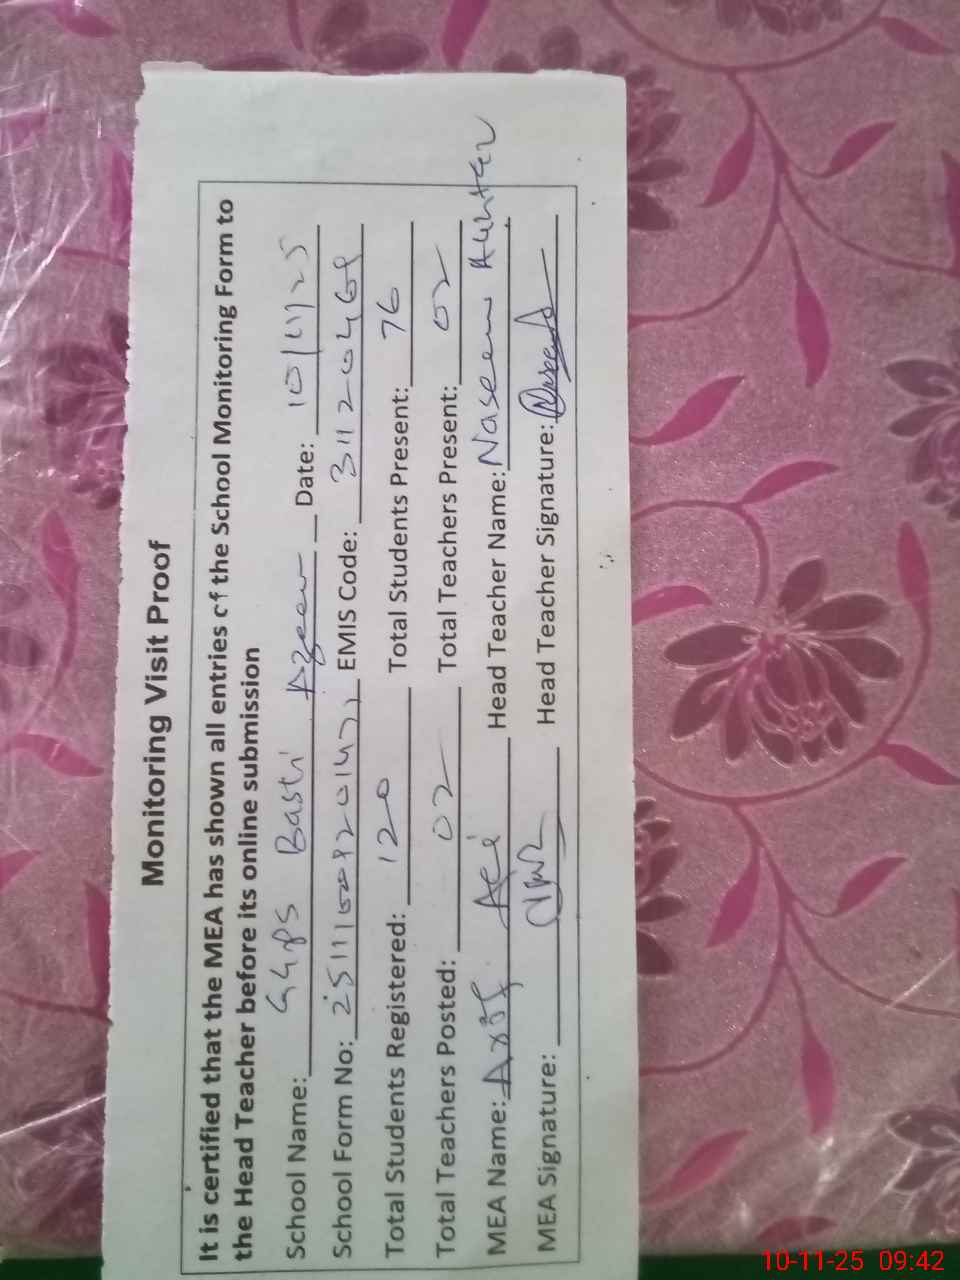 Monitoring Visit Proof
It is certified that the MEA has shown all entries of the School Monitoring Form to
the Head Teacher before its online submission
School Name: GGPS Basti Date: 10/11/25
School Form No: EMIS Code: 31120469
Total Students Registered: 120 Total Students Present: 76
Total Teachers Posted: 02 Total Teachers Present: 02
MEA Name: Head Teacher Name: Naseem Akhter
MEA Signature: Head Teacher Signature:
10-11-25 09:42